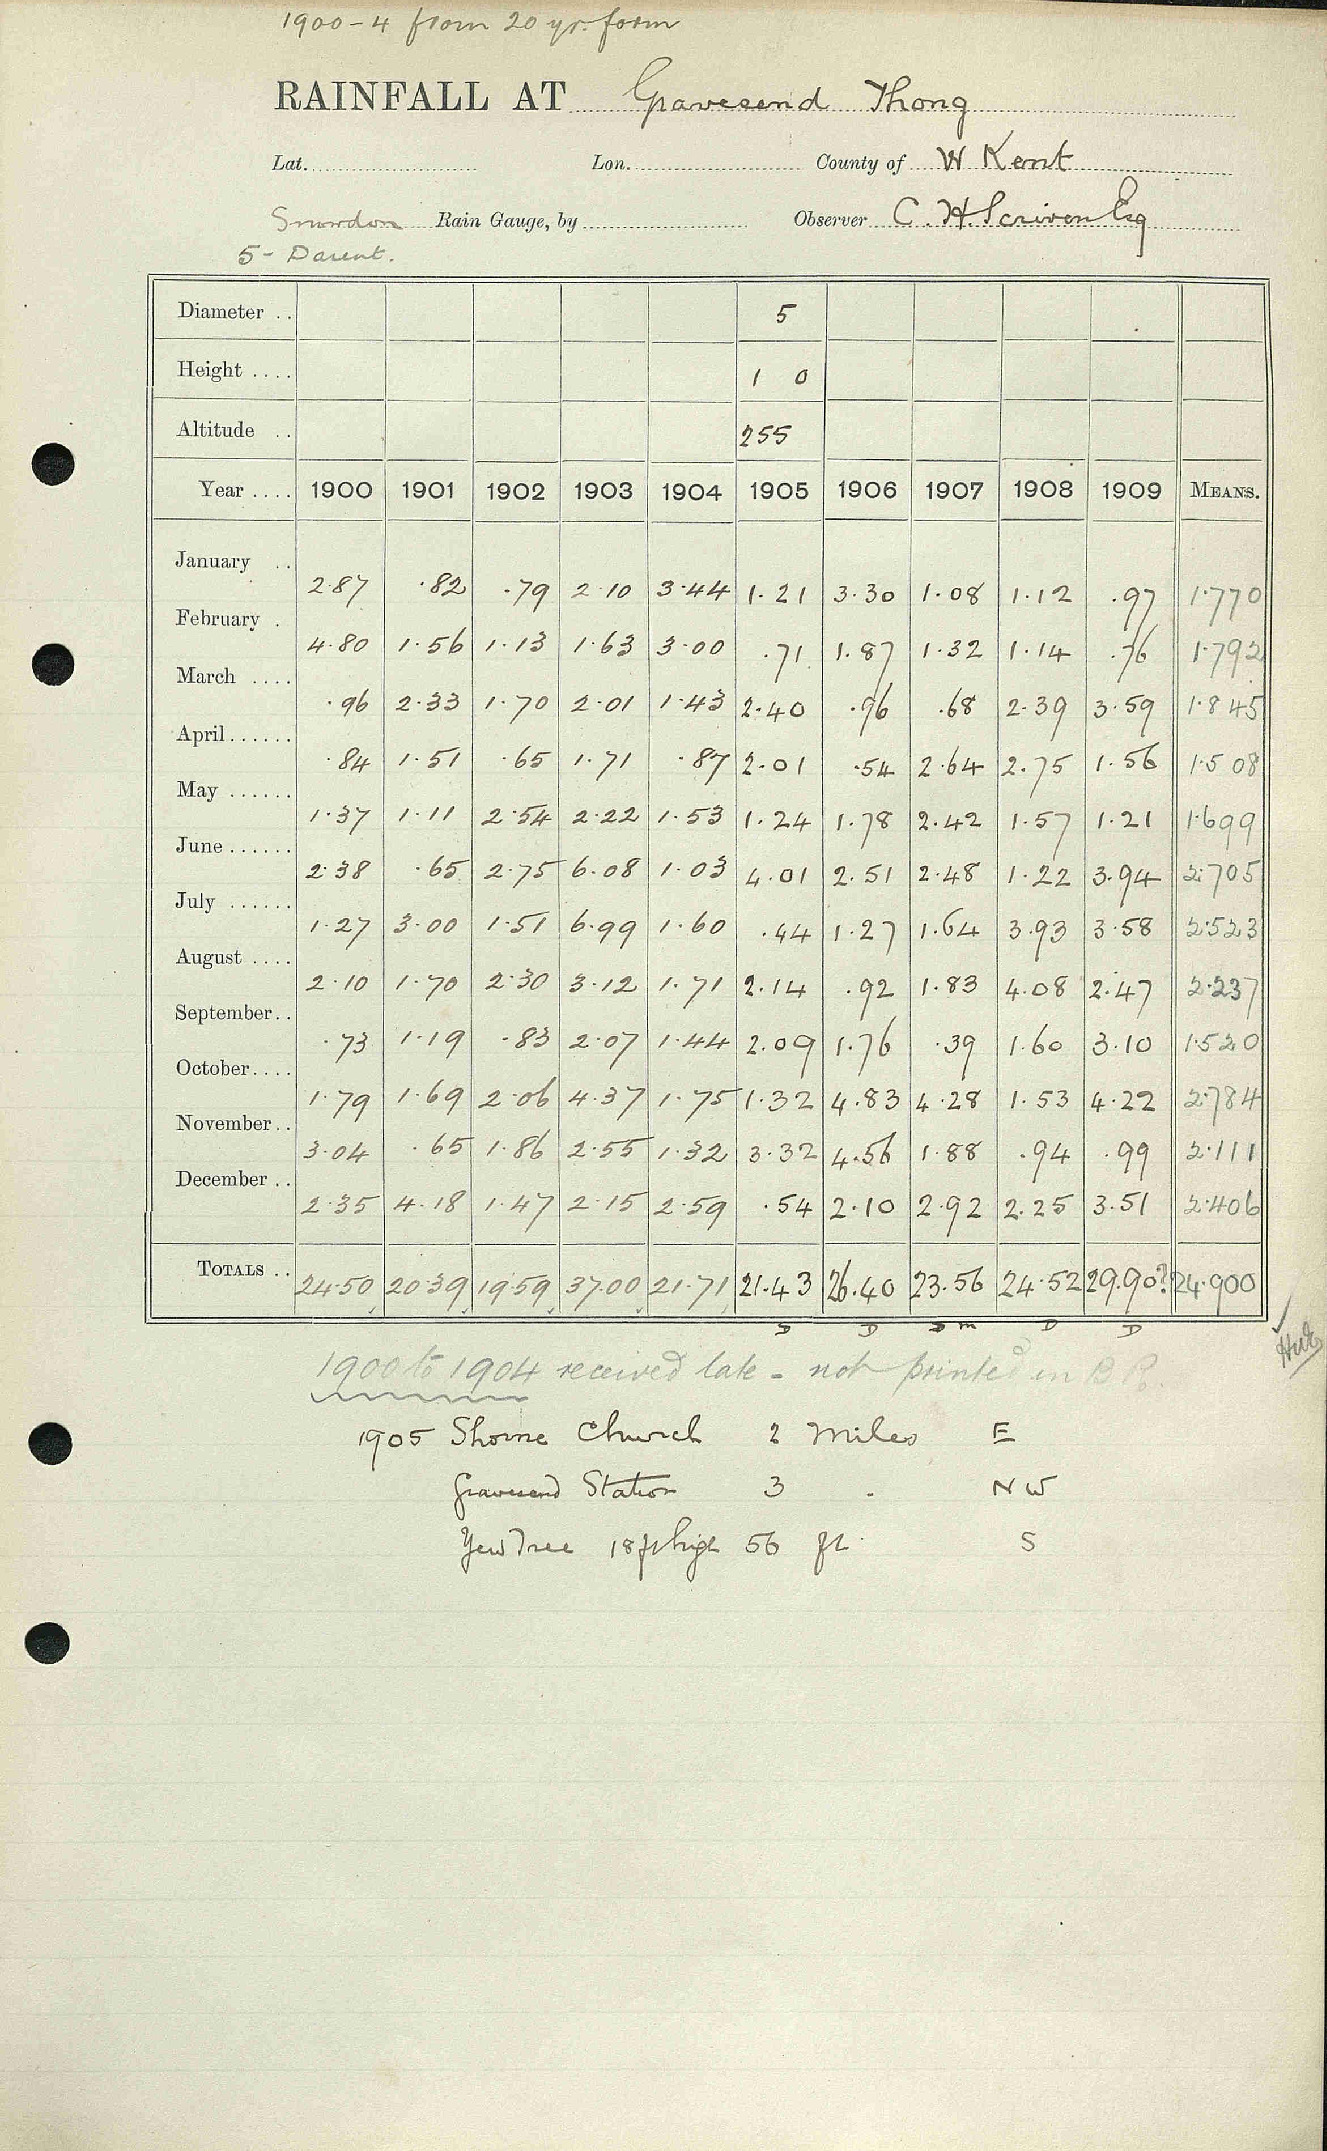 1900-4 from 20 yr. form
RAINFALL AT Gravesend Thong
Lat. Lon. County of W Kent
Snowdon Rain Gauge, by Observer C. H. Scriven Esq
5- Darent.
Diameter .. 5
Height .... 1 0
Altitude .. 255
Year .... 1900 1901 1902 1903 1904 1905 1906 1907 1908 1909 MEANS.
January .. 2.87 .82 .79 2.10 3.44 1.21 3.30 1.08 1.12 .97 1.770
February . 4.80 1.56 1.13 1.63 3.00 .71 1.87 1.32 1.14 .76 1.792
March .... .96 2.33 1.70 2.01 1.43 2.40 .96 .68 2.39 3.59 1.845
April...... .84 1.51 .65 1.71 .87 2.01 .54 2.64 2.75 1.56 1.508
May ...... 1.37 1.11 2.54 2.22 1.53 1.24 1.78 2.42 1.57 1.21 1.699
June ...... 2.38 .65 2.75 6.08 1.03 4.01 2.51 2.48 1.22 3.94 2.705
July ...... 1.27 3.00 1.51 6.99 1.60 .44 1.27 1.64 3.93 3.58 2.523
August .... 2.10 1.70 2.30 3.12 1.71 2.14 .92 1.83 4.08 2.47 2.237
September.. .73 1.19 .83 2.07 1.44 2.09 1.76 .39 1.60 3.10 1.520
October.... 1.79 1.69 2.06 4.37 1.75 1.32 4.83 4.28 1.53 4.22 2.784
November.. 3.04 .65 1.86 2.55 1.32 3.32 4.56 1.88 .94 .99 2.111
December .. 2.35 4.18 1.47 2.15 2.59 .54 2.10 2.92 2.25 3.51 2.406
TOTALS .. 24.50 20.39 19.59 37.00 21.71 21.43 26.40 23.56 24.52 29.90? 24.900
D D D m D D
1900 to 1904 received late - not printed in B.R.
1905 Shorne Church 2 Miles E
Gravesend Station 3 . NW
Yew Tree 18 ft high 56 ft. S